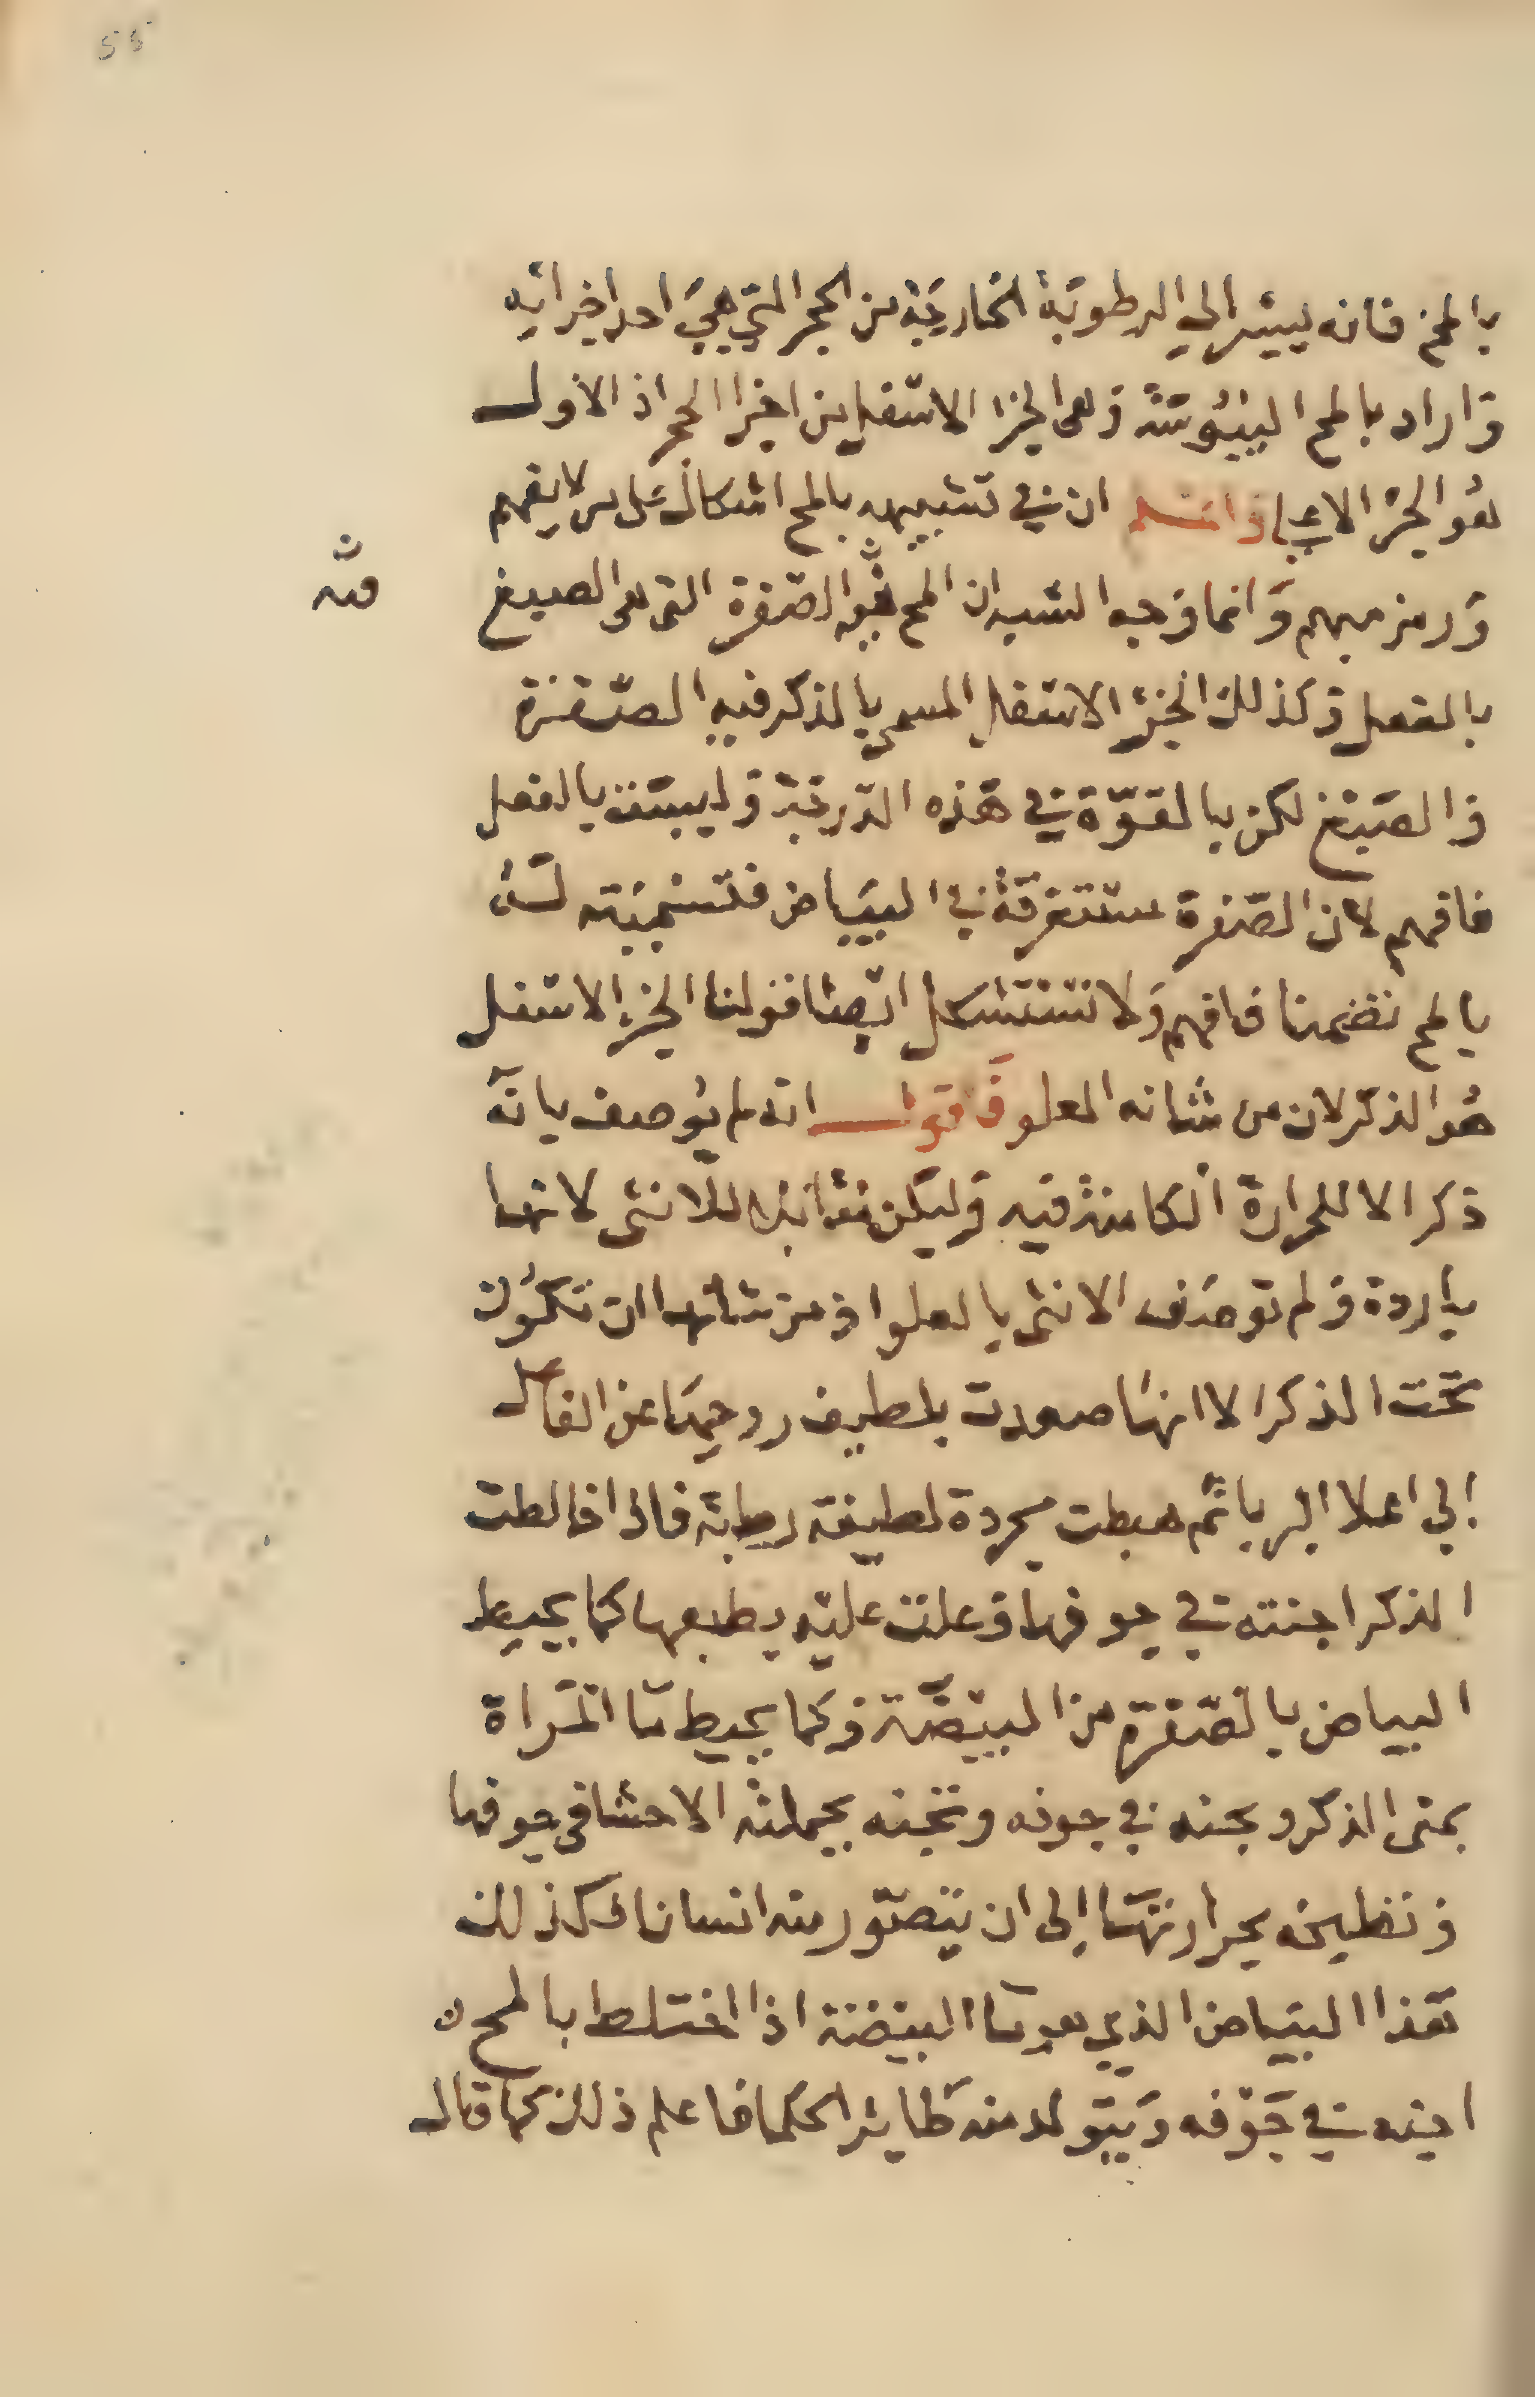 55
بالمح فانه يشير الي الرطوبة الخارجة من الحجر التي هي احد اجزائه
و اراد بالمح اليبوسة وهى الجزا الاسفل من اجزا الحجر اذ الاول
هو الجز الاعلي واعلم ان في تشبيهه بالمح اشكال على من لا يفهم
و رمز مبهم و انما وجه الشبه ان المح فيه الصفرة التى هى الصبغ
منه
بالفعل وكذلك الجزء الاسفل المسمي بالذكر فيه الصفرة
و الصبغ لكن بالقوة في هذه الدرجة و ليست بالفعل
فافهم لان الصفرة مستغرقة في البياض فتسميته
بالمح فافهم ولا تستشكل ايضا قولنا الجزء الاسفل
هو الذكر لان من شانه العلو فاقول انه لم يوصف بانه
ذكر الا للحرارة الكامنة فيه و ليكن للانثى لانها
باردة و لم توصف الانثى بالعلو و من شانها ان تكون
تحت الذكر الا انها صعدت بلطيف روحها عن
الي اعلا البربا ثم هبطت مجردة لطيفة رطبة فاذا خالطت
الذكر اجنته في جوفها و علت عليه بطبعها كما يحيط
البياض بالصفرة من البيضة و كما يحيط ما المراة
بمنى الذكر و يجنه في جوفه و تجنه بجملته الاحشا في جوفها
و تطبخه بحرارتها إلى ان يتصور منه انسانا و كذلك
هذا البياض الذي هو ما البيضة اذا اختلط بالمح
اجنه في جوفه و يتولد منه طاير الحكما فاعلم ذلك كما قال